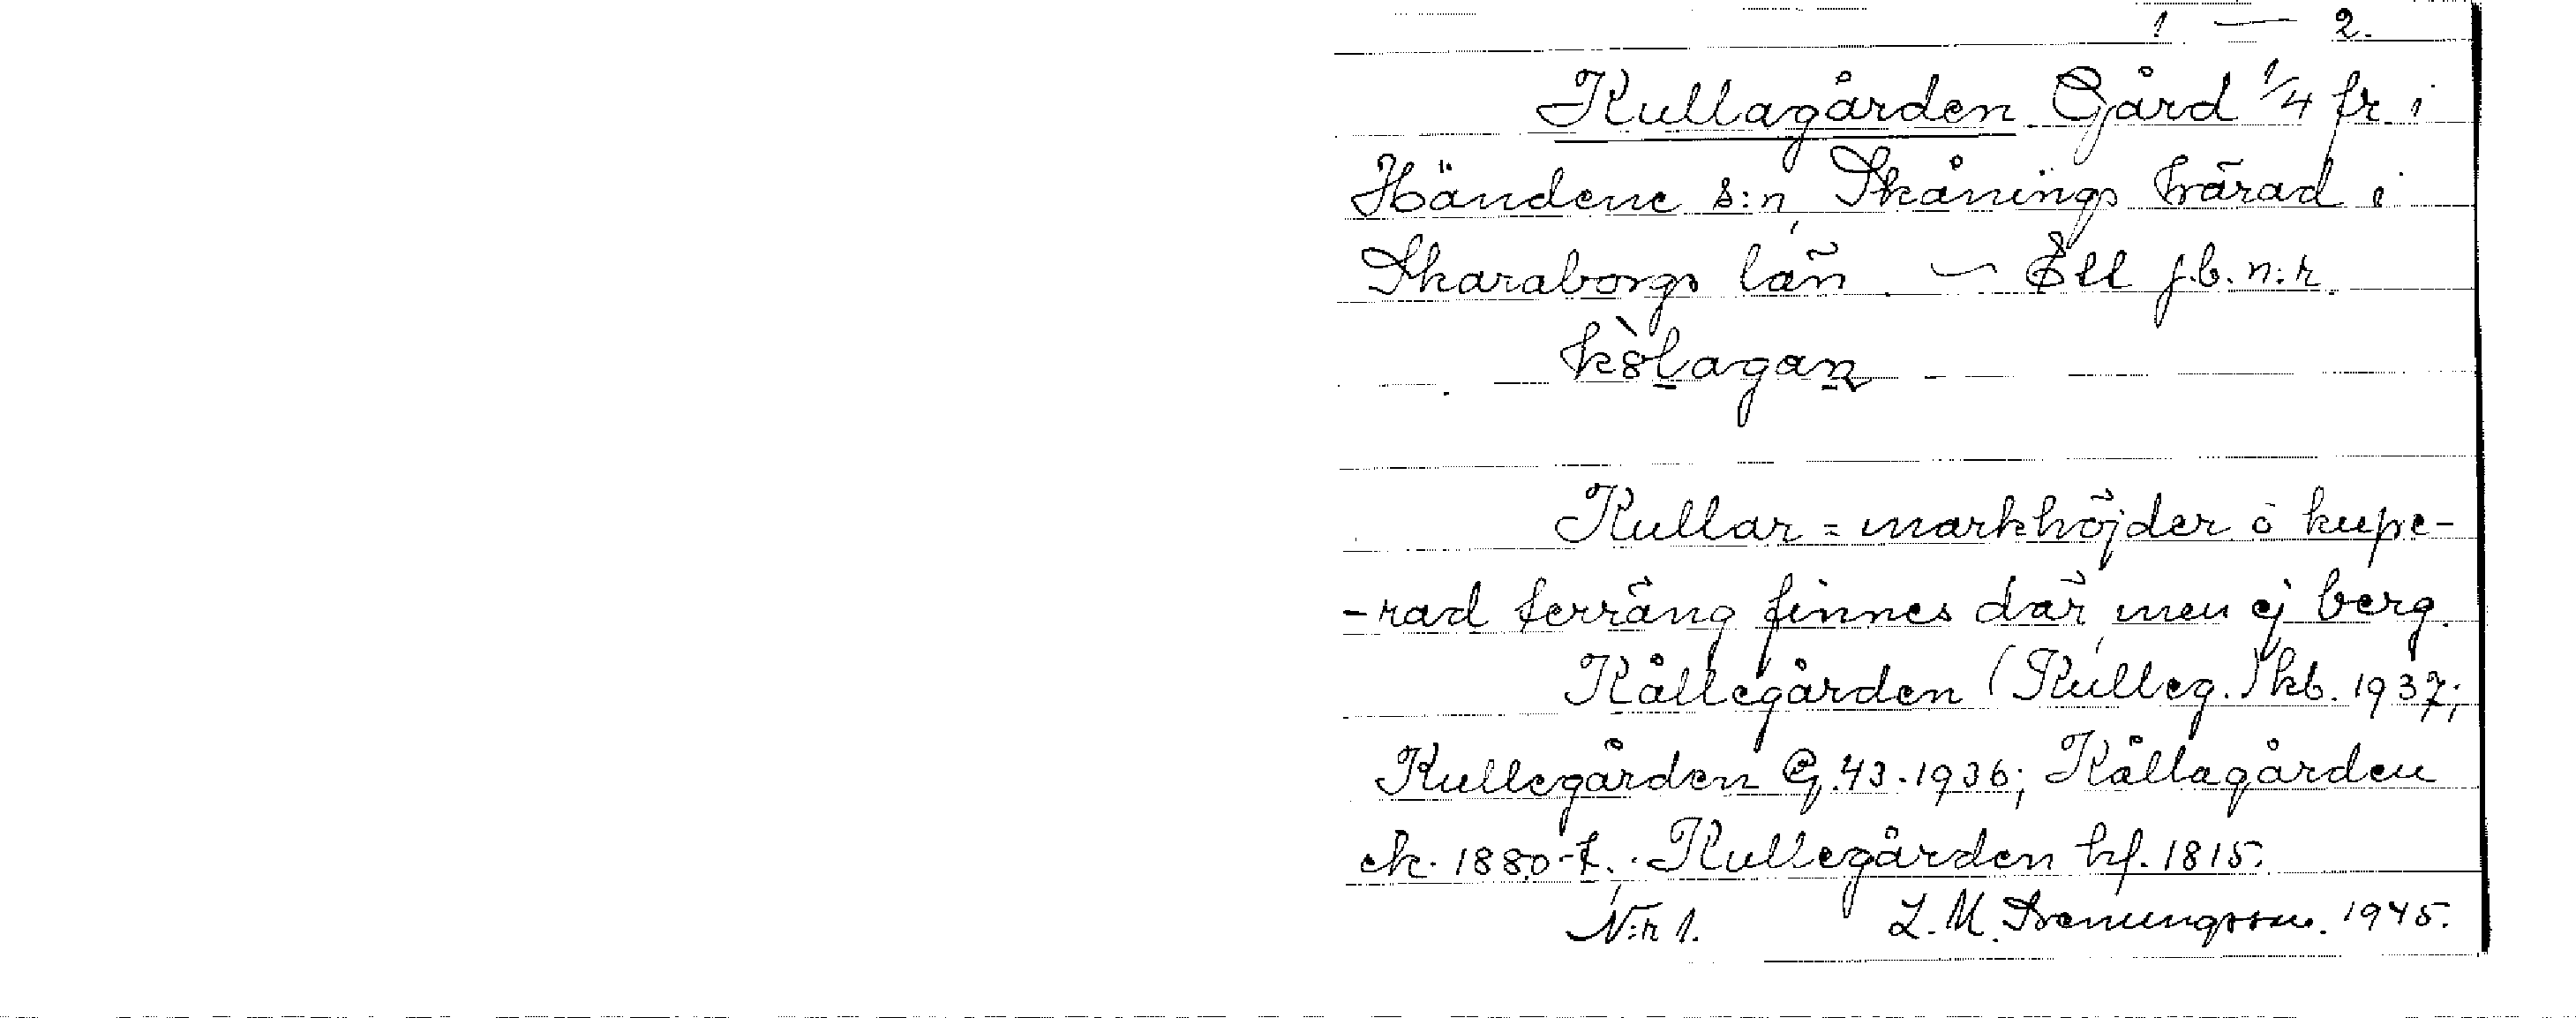 1 — 2.
Kullagården Gård 1/4 fr. i
Händene s:n, Skånings härad i
Skaraborgs län. — Ett j.b. n:r.
Kullar = markhöjder o kupe-
-rad terräng finnes där, men ej berg.
Kållegården (Kulleg.) kb. 1937;
Kullegården G. 43. 1936; Kållagården
ek. 1880-t.; Kullegården hf. 1815.
N:r 1. L. M. 1945.